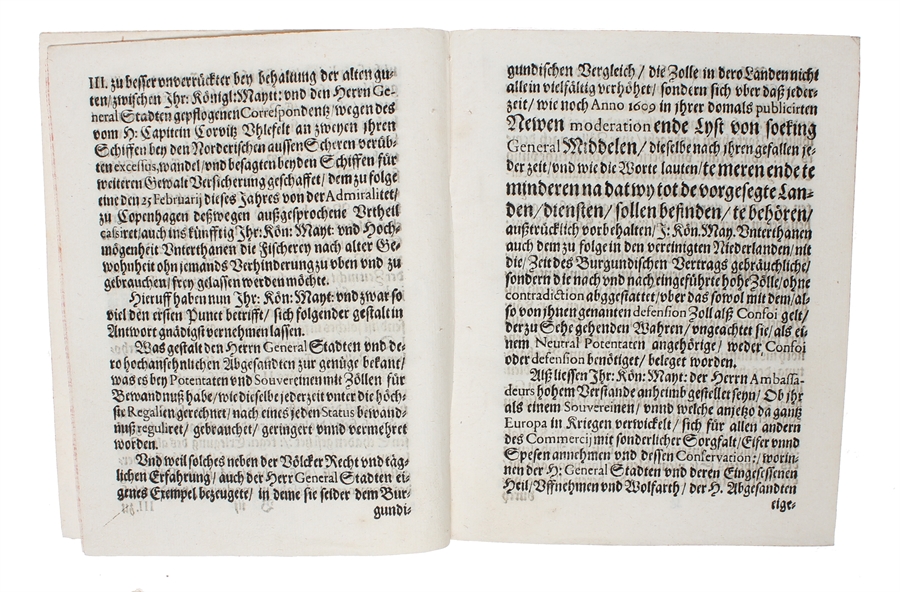 III. zu besser vnverrückter bey behaltung der alten gu-
ten/zwischen Ihr: Königl: Maytt: vnd den Herrn Ge-
neral Stadten gepflogenen Correspondentz/wegen des
vom H: Capitein Corvitz Vhlefelt an zweyen jhren
Schiffen bey den Norderischen aussen Scheren verüb-
ten excessus, wandel/vnd besagten beyden Schiffen für
weiteren Gewalt Versicherung geschaffet/dem zu folge
eine den 25 Februarij dieses Jahres von der Admiralitet/
zu Copenhagen deßwegen außgesprochene Vrtheil
caßiret/auch ins künfftig Ihr: Kön: Mayt: vnd Hoch-
mögenheit Vnterthanen die Fischerey nach alter Ge-
wohnheit ohn jemands Verhinderung zu vben vnd zu
gebrauchen/frey gelassen werden möchte.
Hieruff haben nun Ihr: Kön: Mayt: vnd zwar so
viel den ersten Punct betrifft/ sich folgender gestalt in
Antwort gnädigst vernehmen lassen.
Was gestalt den Herrn General Stadten vnd de-
ro hochansehnlichen Abgesandten zur genüge bekant/
was es bey Potentaten vnd Souvereinen mit Zöllen für
Bewandnuß habe/wie dieselbe jederzeit vnter die höch-
ste Regalien gerechnet/nach eines jeden Status bewand-
nuß reguliret/ gebrauchet/ geringert vnnd vermehret
worden.
Vnd weil solches neben der Völcker Recht vnd täg-
lichen Erfahrung/ auch der Herr General Stadten ei-
genes Exempel bezeugete/ in deme sie seider dem Bur-
gundi-
gundischen Vergleich/ die Zolle in dero Landen nicht
allein vielfältig verhöhet/ sondern sich vber daß jeder-
zeit/ wie noch Anno 1609 in jhrer domals publicirten
Newen moderation ende Lyst von soeking
General Middelen/ dieselbe nach jhren gefallen je-
der zeit/ vnd wie die Worte lauten/ te meren ende te
minderen na dat wy tot de vorgesegte Lan-
den/ diensten/ sollen befinden/ te behören/
außtrücklich vorbehalten/ J: Kön. May. Vnterthanen
auch dem zu folge in den vereinigten Niederlanden/ nit
die/ Zeit des Burgundischen Vertrags gebräuchliche/
sondern die nach vnd nach eingeführte hohe Zölle/ ohne
contradiction abggestattet/ vber das sowol mit dem/ al-
so von jhnen genanten defension Zoll alß Confoi gelt/
der zu Sehe gehenden Wahren/ vngeachtet sie/ als ei-
nem Neutral Potentaten angehörige/ weder Confoi
oder defension benötiget/ beleget worden.
Alß liessen Ihr: Kön: Mayt: der Herrn Ambassa-
deurs hohem Verstande anheimb gestellet seyn/ Ob jhr
als einem Souvereinen/ vnnd welche anjetzo da gantz
Europa in Kriegen verwickelt/ sich für allen andern
des Commercij mit sonderlicher Sorgfalt/ Eifer vnnd
Spesen annehmen vnd dessen Conservation:/ worin-
nen der H: General Stadten vnd deren Eingesessenen
Heil/ Vffnehmen vnd Wolfarth/ der H. Abgesandten
eige-